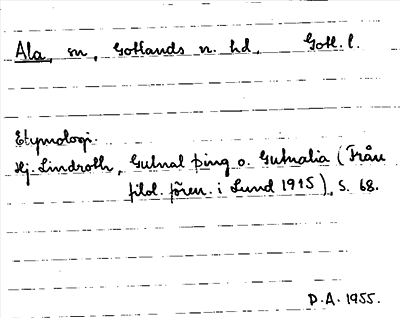 Ala, sn, Gotlands n. hd, Gotl. l.
Etymologi.
Hj. Lindroth, Gutnal þing o. Gutnalia (Från
filol. fören. i Lund 1915), S. 68.
D.A. 1955.